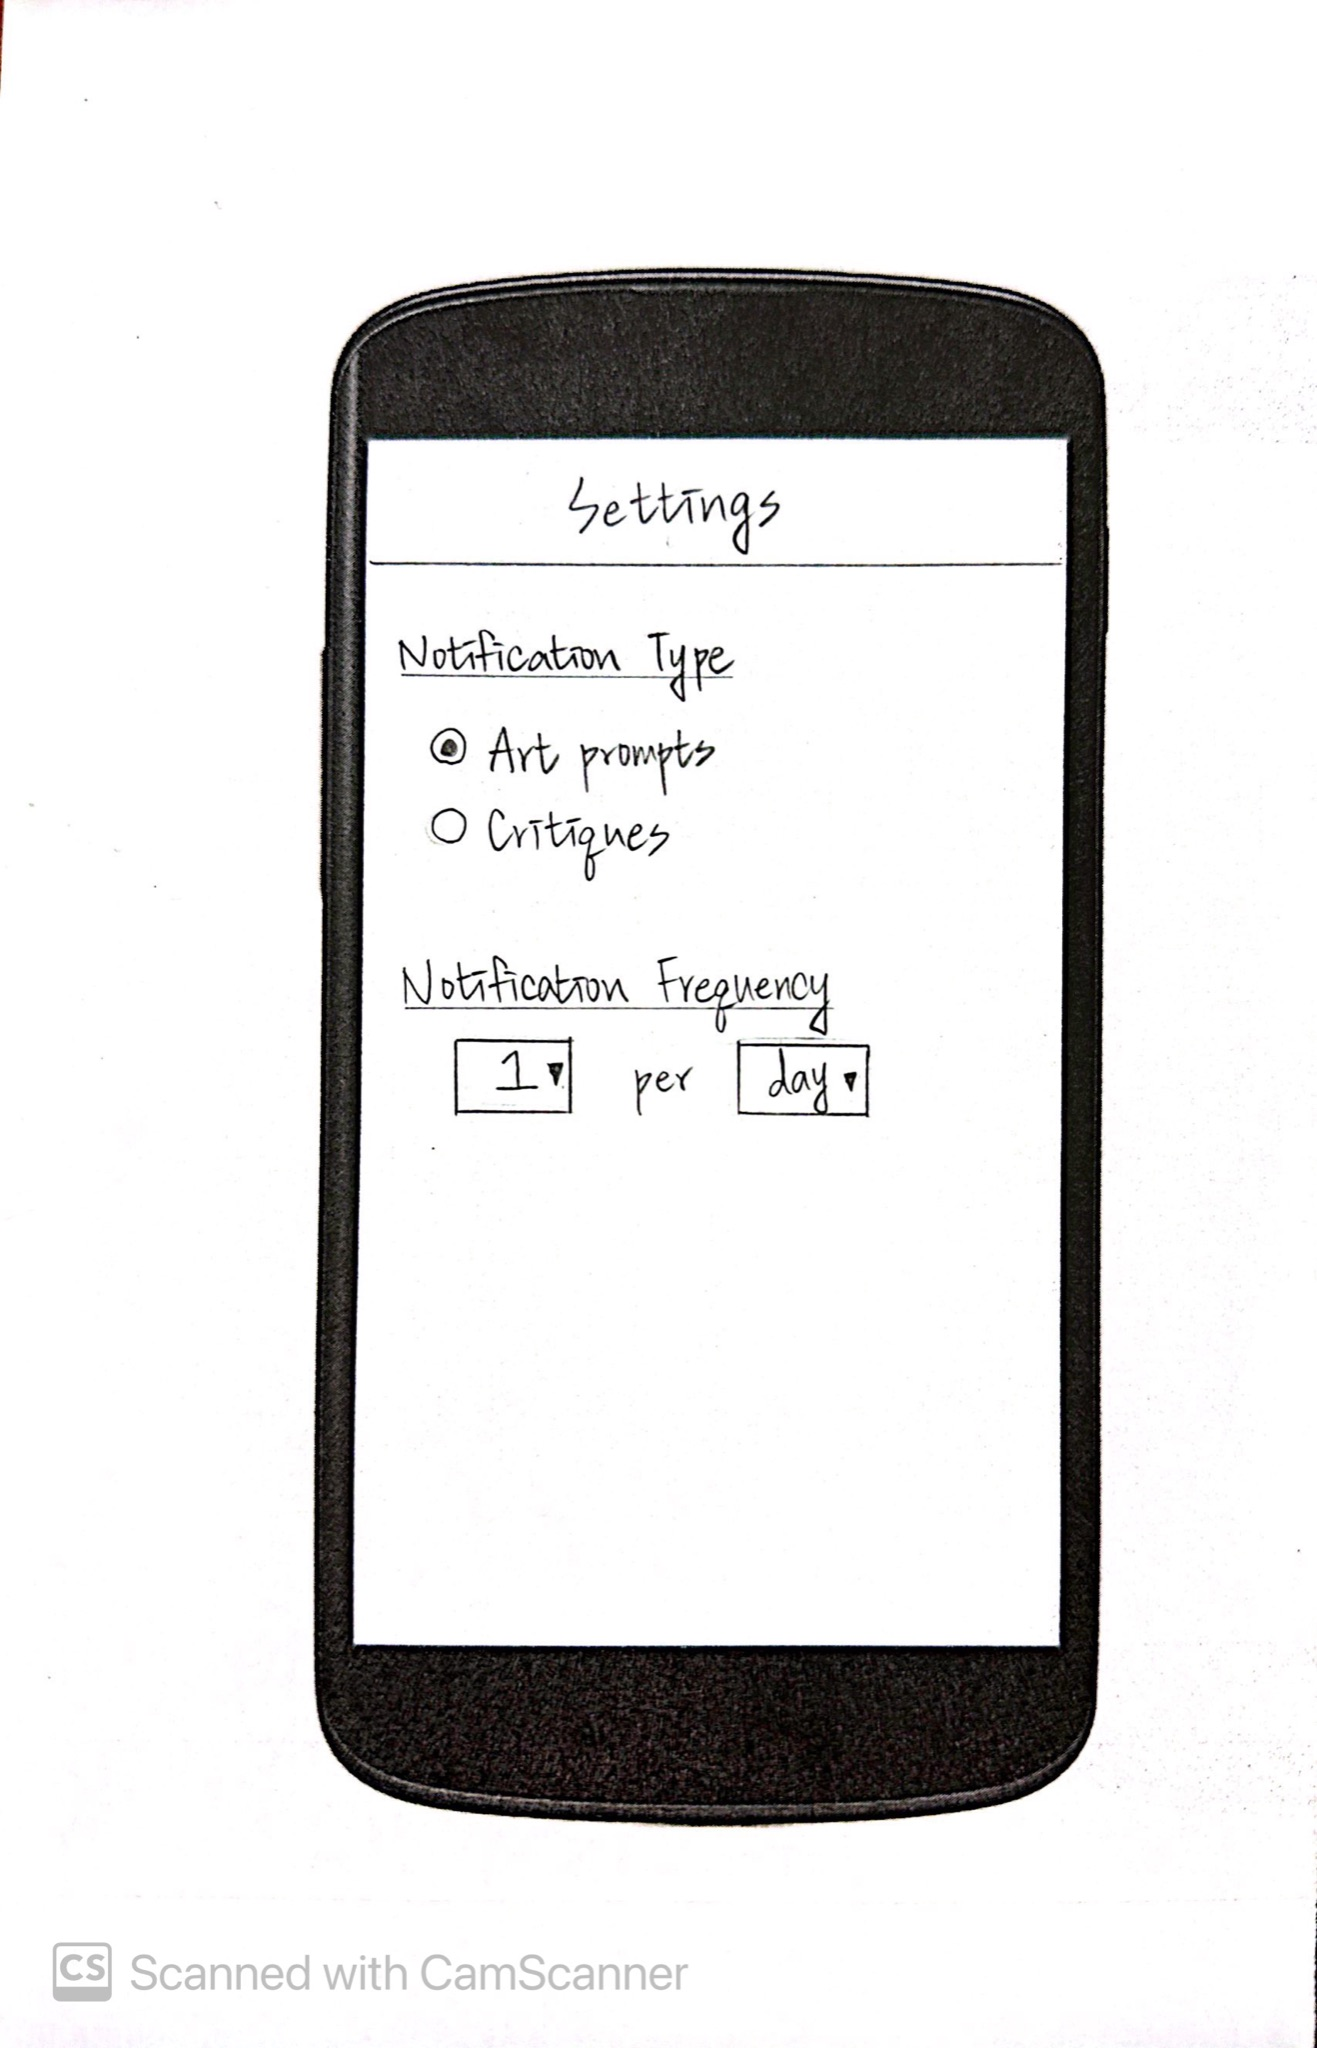 Settings
Notification Type
Art prompts
Critiques
Notification Frequency
1 per day
CS Scanned with CamScanner